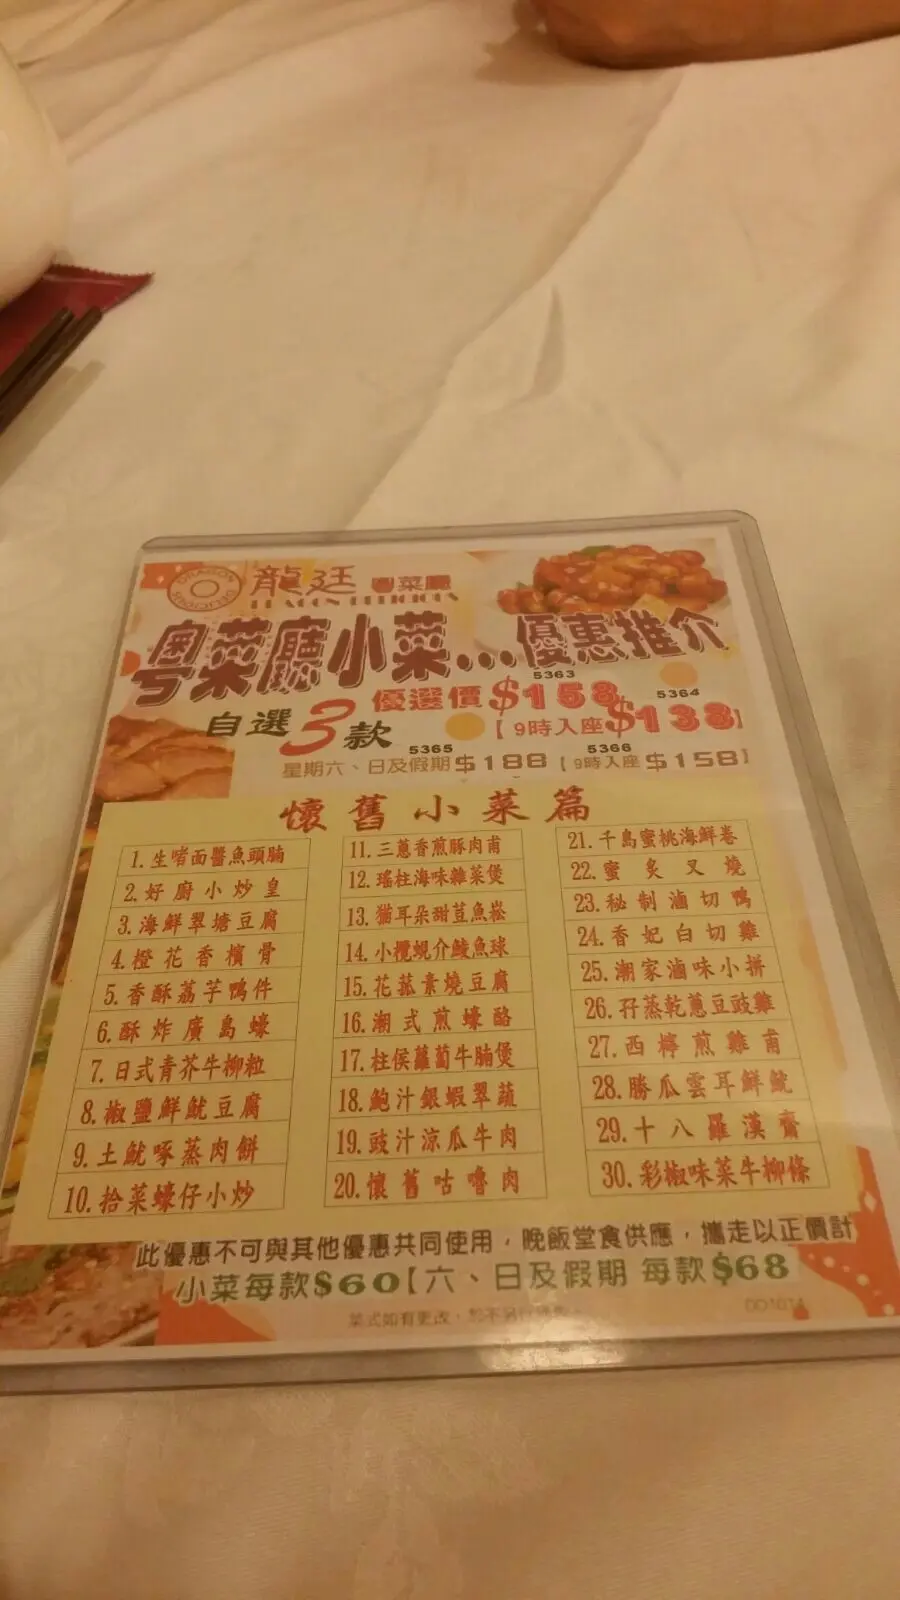 龍廷 粵菜廳
DRAGON DELICIOUS
粵菜廳小菜...優惠推介
5363
優選價$158
5364
自選3款
【9時入座$138】
5365
5366
星期六、日及假期$188【9時入座$158】
懷舊小菜篇
1.生啫面醬魚頭腩
2.好廚小炒皇
3.海鮮翠塘豆腐
4.橙花香檳骨
5.香酥荔芋鴨件
6.酥炸廣島蠔
7.日式青芥牛柳粒
8.椒鹽鮮魷豆腐
9.土魷啄蒸肉餅
10.拾菜蠔仔小炒
11.三蔥香煎豚肉甫
12.瑤柱海味雜菜煲
13.猫耳朵甜荳魚崧
14.小欖蜆介鯪魚球
15.花菰素燒豆腐
16.潮式煎蠔酪
17.柱侯蘿蔔牛腩煲
18.鮑汁銀蝦翠蔬
19.豉汁涼瓜牛肉
20.懷舊咕嚕肉
21.千島蜜桃海鮮卷
22.蜜炙叉燒
23.秘制滷切鴨
24.香妃白切雞
25.潮家滷味小拼
26.孖蒸乾蔥豆豉雞
27.西檸煎雞甫
28.勝瓜雲耳鮮魷
29.十八羅漢齋
30.彩椒味菜牛柳條
此優惠不可與其他優惠共同使用，晚飯堂食供應，攜走以正價計
小菜每款$60【六、日及假期 每款$68
菜式如有更改，恕不另行